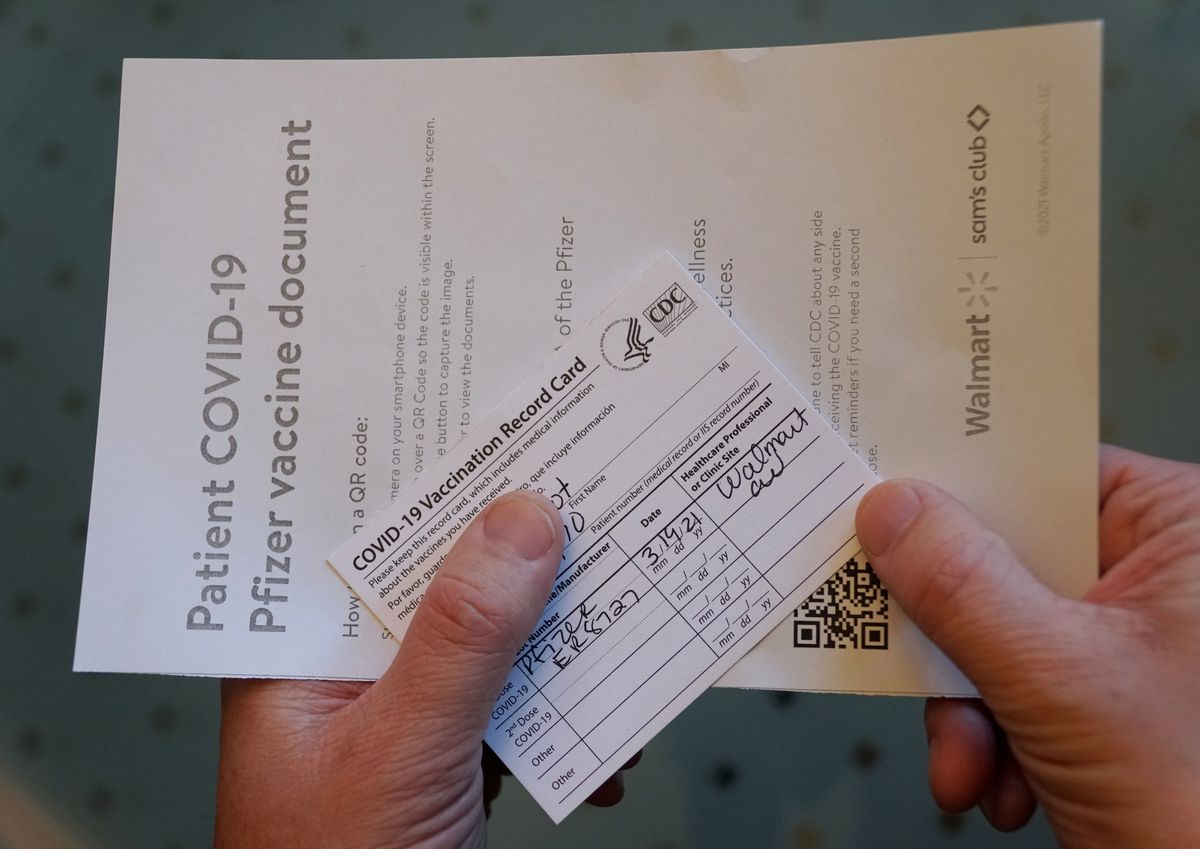 Patient COVID-19
Pfizer vaccine document
How
a QR code:
on your smartphone device.
over a QR Code so the code is visible within the screen.
button to capture the image.
to view the documents.
of the Pfizer
to tell CDC about any side
the COVID-19 vaccine.
reminders if you need a second
Walmart
sam's club
©2021 Walmart Apollo, LLC
COVID-19 Vaccination Record Card
Please keep this record card, which includes medical information
about the vaccines you have received.
Por favor, que incluye información
First Name
MI
Patient number (medical record or IIS record number)
Manufacturer
Date
Healthcare Professional
or Clinic Site
COVID-19
Pfizer
ER8727
3/19/21
mm dd yy
Walmart
2nd Dose
COVID-19
mm dd yy
Other
mm dd yy
Other
mm dd yy
CDC